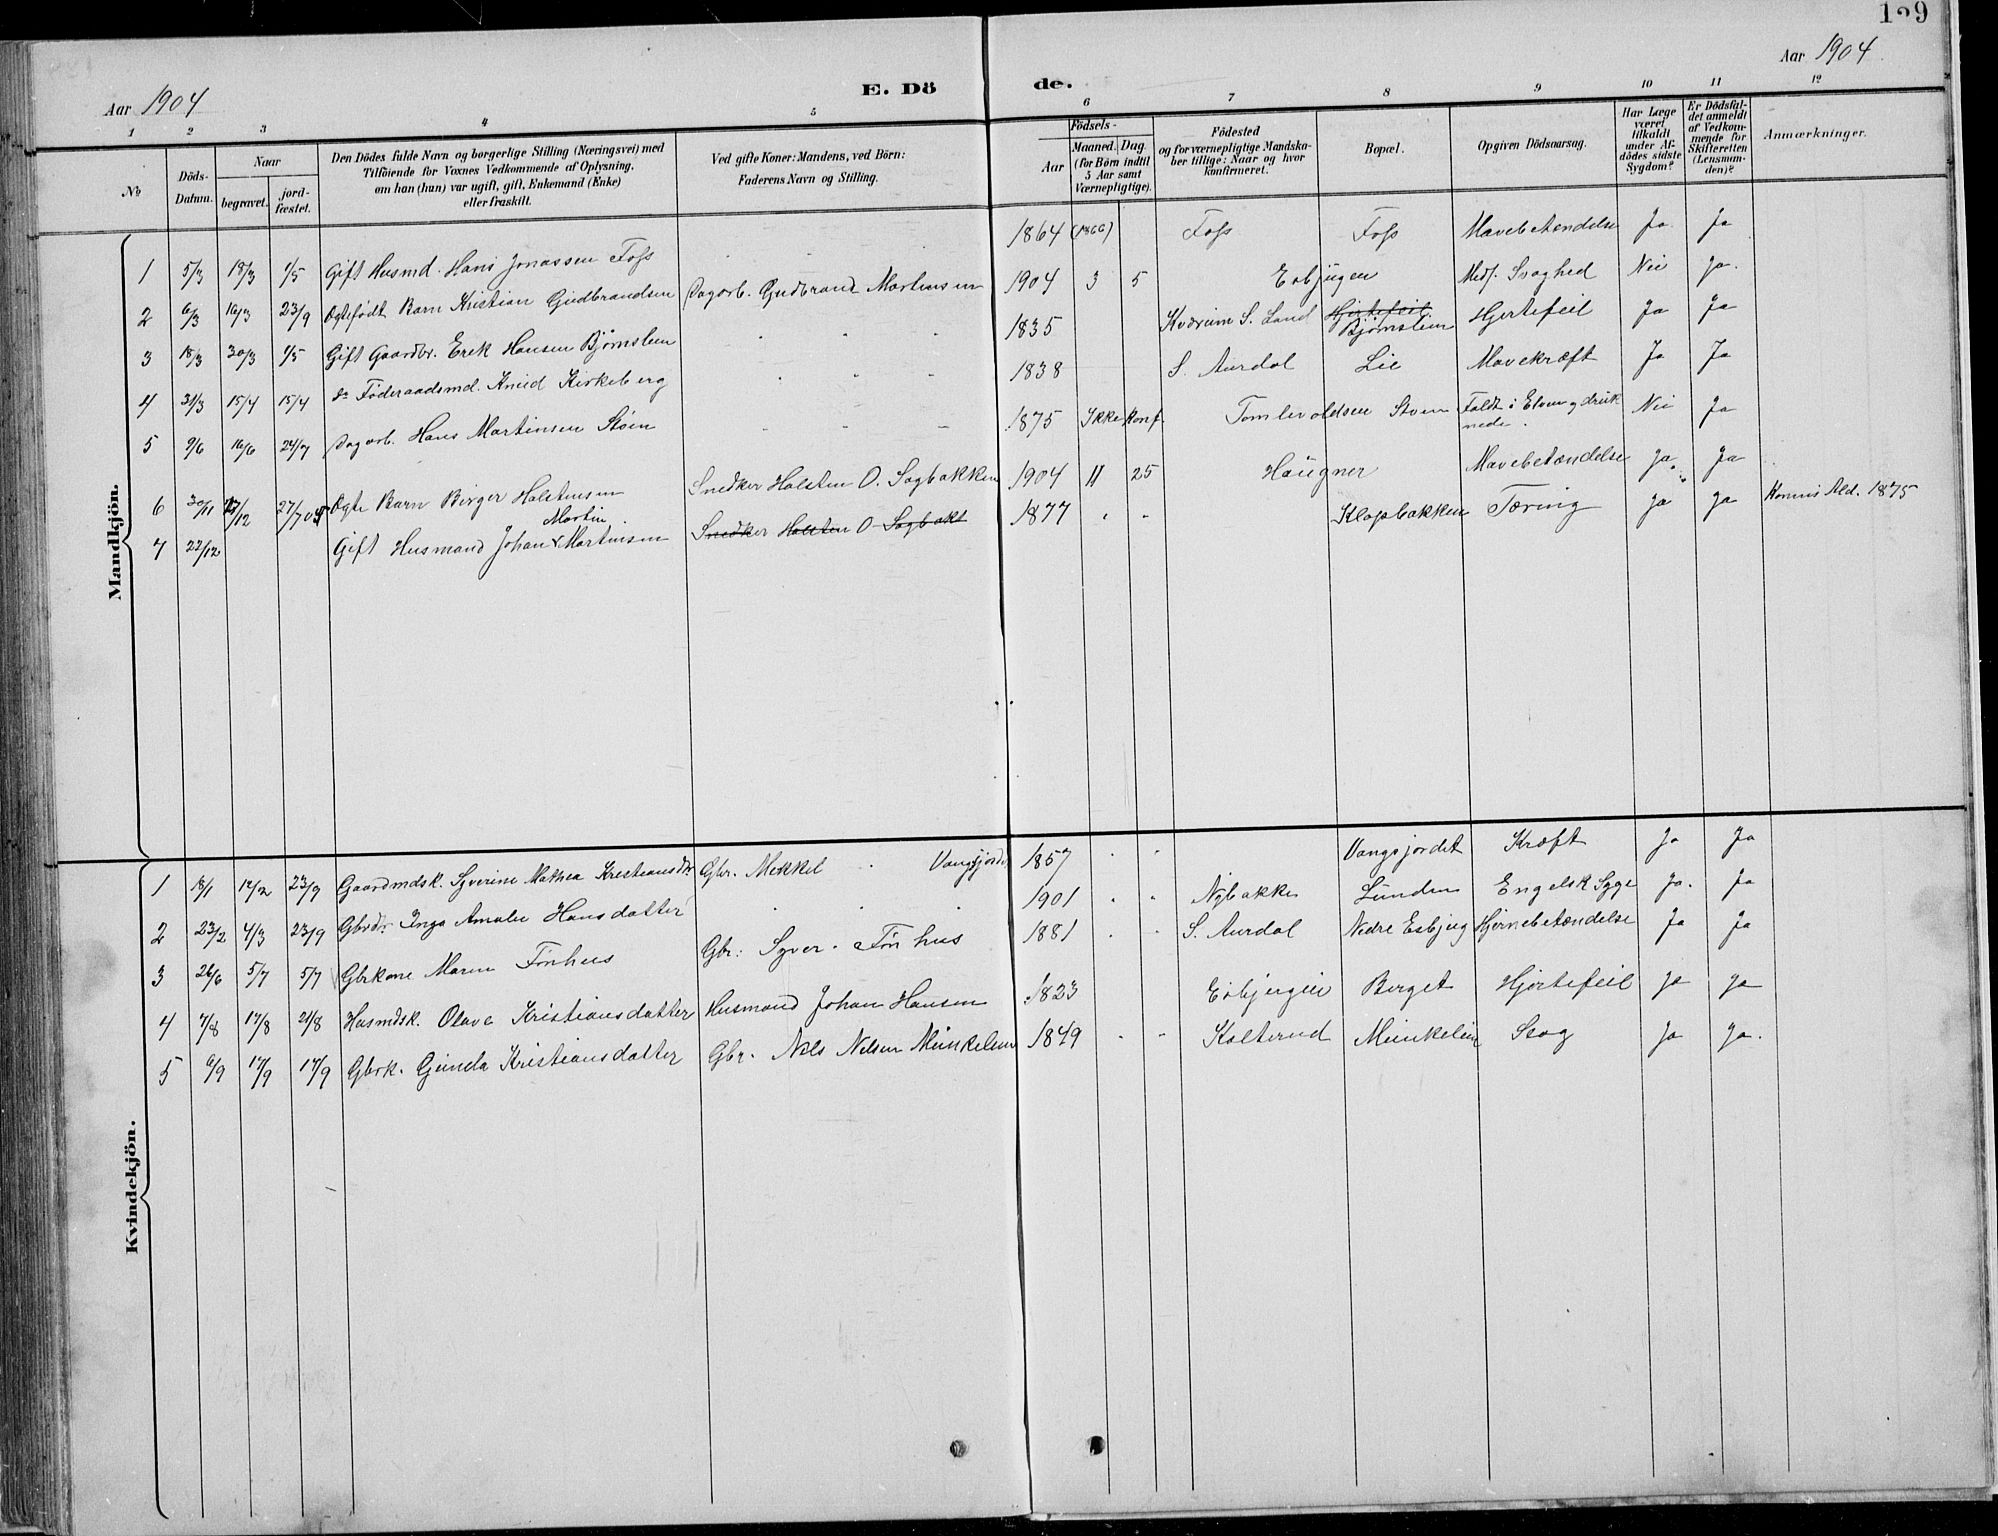 Aar 1904
E. Dö
de.
Aar 1904.
1 2 3 4 5 6 7 8 9 10 11 12
No
Döds-Datum.
Naar begravet. jord-fæstet.
Den Dödes fulde Navn og borgerlige Stilling (Næringsvei) med Tilföiende for Voxnes Vedkommende af Oplysning, om han (hun) var ugift, gift, Enkemand (Enke) eller fraskilt.
Ved gifte Koner: Mandens, ved Börn: Faderens Navn og Stilling.
Födsels- Aar Maaned. Dag. (for Börn indtil 5 Aar samt Værnepligtige).
Födested og for værnepligtige Mandskaber tillige: Naar og hvor konfirmeret.
Bopæl.
Opgiven Dödsaarsag.
Har Læge været tilkaldt under Afdödes sidste Sygdom?
Er Dödsfaldet anmeldt af Vedkommende for Skifteretten (Lensmanden)?
Anmærkninger.
Mandkjön.
1 5/3 18/3 1/5 Gift Husmd. Hans Jonassen Foss 1864 (1866) Foss Foss Mavebetændelse Ja Ja
2 6/3 16/3 23/9 Ægtefödt Barn Kristian Gudbrandsen Dagarb. Gudbrand Martinsen 1904 3 5 Esbjugen Medf. Svaghed Nei Ja.
3 18/3 30/3 1/5 Gift Gaardbr. Erek Hansen Bjørnslien 1835 Kværum S. Land Hjertefeil Bjørnslien Hjertefeil Ja Ja
4 31/3 15/4 15/4 do Föderaadsmd. Knud Kirkeberg 1838 S. Aurdal Lie Mavekræft Ja Ja
5 9/6 16/6 24/7 Dagarb. Hans Martinsen Støen 1875 Ikke konf. Tomlevoldsen Stoen Faldt i Elven og druknede. Nei Ja
6 30/11 27/12 27/7 05 Ægte Barn Birger Halstensen Snedker Halsten O. Sagbakken 1904 11 25 Haugner Mavebetændelse Ja Ja
7 22/12 Gift Husmand Johan Martin Martinsen Snedker Halsten O Sagbakk 1877 Klopbakken Tæring Ja Ja Kommis Ald. 1875
Kvindekjön.
1 18/1 12/2 23/9 Gaardmdsk. Syverine Mathea Kristiansdtr Gbr. Mekkel Vangsjordet 1857 Vangsjordet Kræft Ja Ja
2 23/2 4/3 23/9 Gbrdr. Inga Amalie Hansdatter 1901 Nybakke Lunden Engelsk Syge Ja. Ja
3 26/6 5/7 5/7 Gbrkone Maren Fønhus Gbr: Syver Fønhus 1881 S. Aurdal Nedre Esbjug Hjernebetændelse Ja Ja
4 7/8 17/8 21/8 Husmdsk. Olave Kristiansdatter Husmand Johan Hansen 1823 Esbjugen Berget Hjertefeil Ja Ja
5 6/9 17/9 17/9 Gbrk. Gunda Kristiansdatter Gbr. Nils Nilsen Meinkelien 1849 Kolterud Meinkelien Slag Ja Ja.